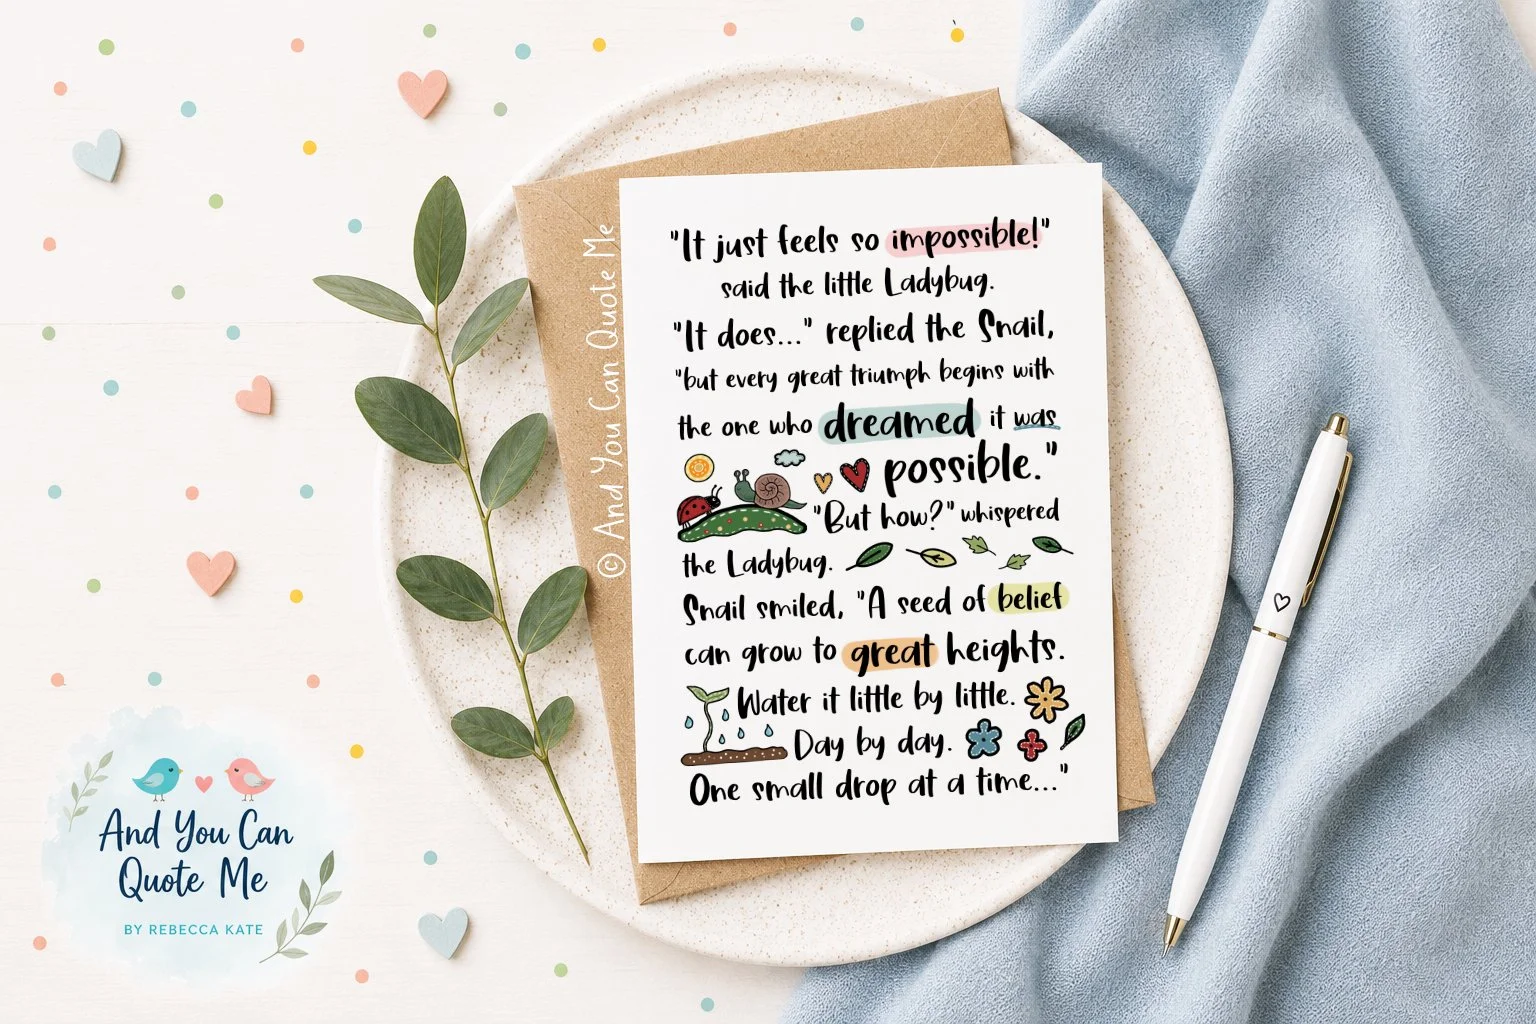 "It just feels so impossible!"
said the little Ladybug.
"It does..." replied the Snail,
"but every great triumph begins with
the one who dreamed it was
possible."
"But how?" whispered
the Ladybug.
Snail smiled, "A seed of belief
can grow to great heights.
Water it little by little.
Day by day.
One small drop at a time..."
© And You Can Quote Me
And You Can
Quote Me
BY REBECCA KATE